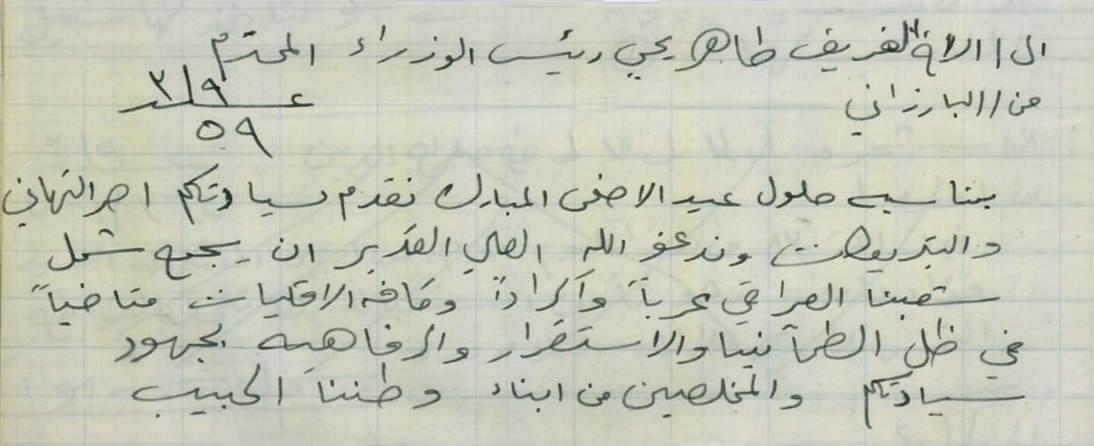 الى / الاخ الفريق طاهر يحيى رئيس الوزراء المحترم
من / البارزاني
٣/٩
ع
٥٩
بمناسبة حلول عيد الاضحى المبارك نقدم لسيادتكم احر التهاني
والتبريكات وندعو الله العلي القدير ان يجمع شمل
شعبنا العراقي عرباً واكراداً وكافة الاقليات متاخياً
في ظل الطمآنينا والاستقرار والرفاهية بجهود
سيادتكم والمخلصين من ابناء وطننا الحبيب